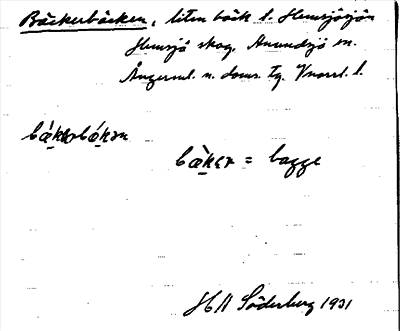 Bäckerbäcken, liten bäck t. Hemsjösjön
Hemsjö skog, Anundsjö sn.
Ångerml. n. doms. Tg. Vnorrl. l.
bäkər = bagge
HN Söderberg 1931